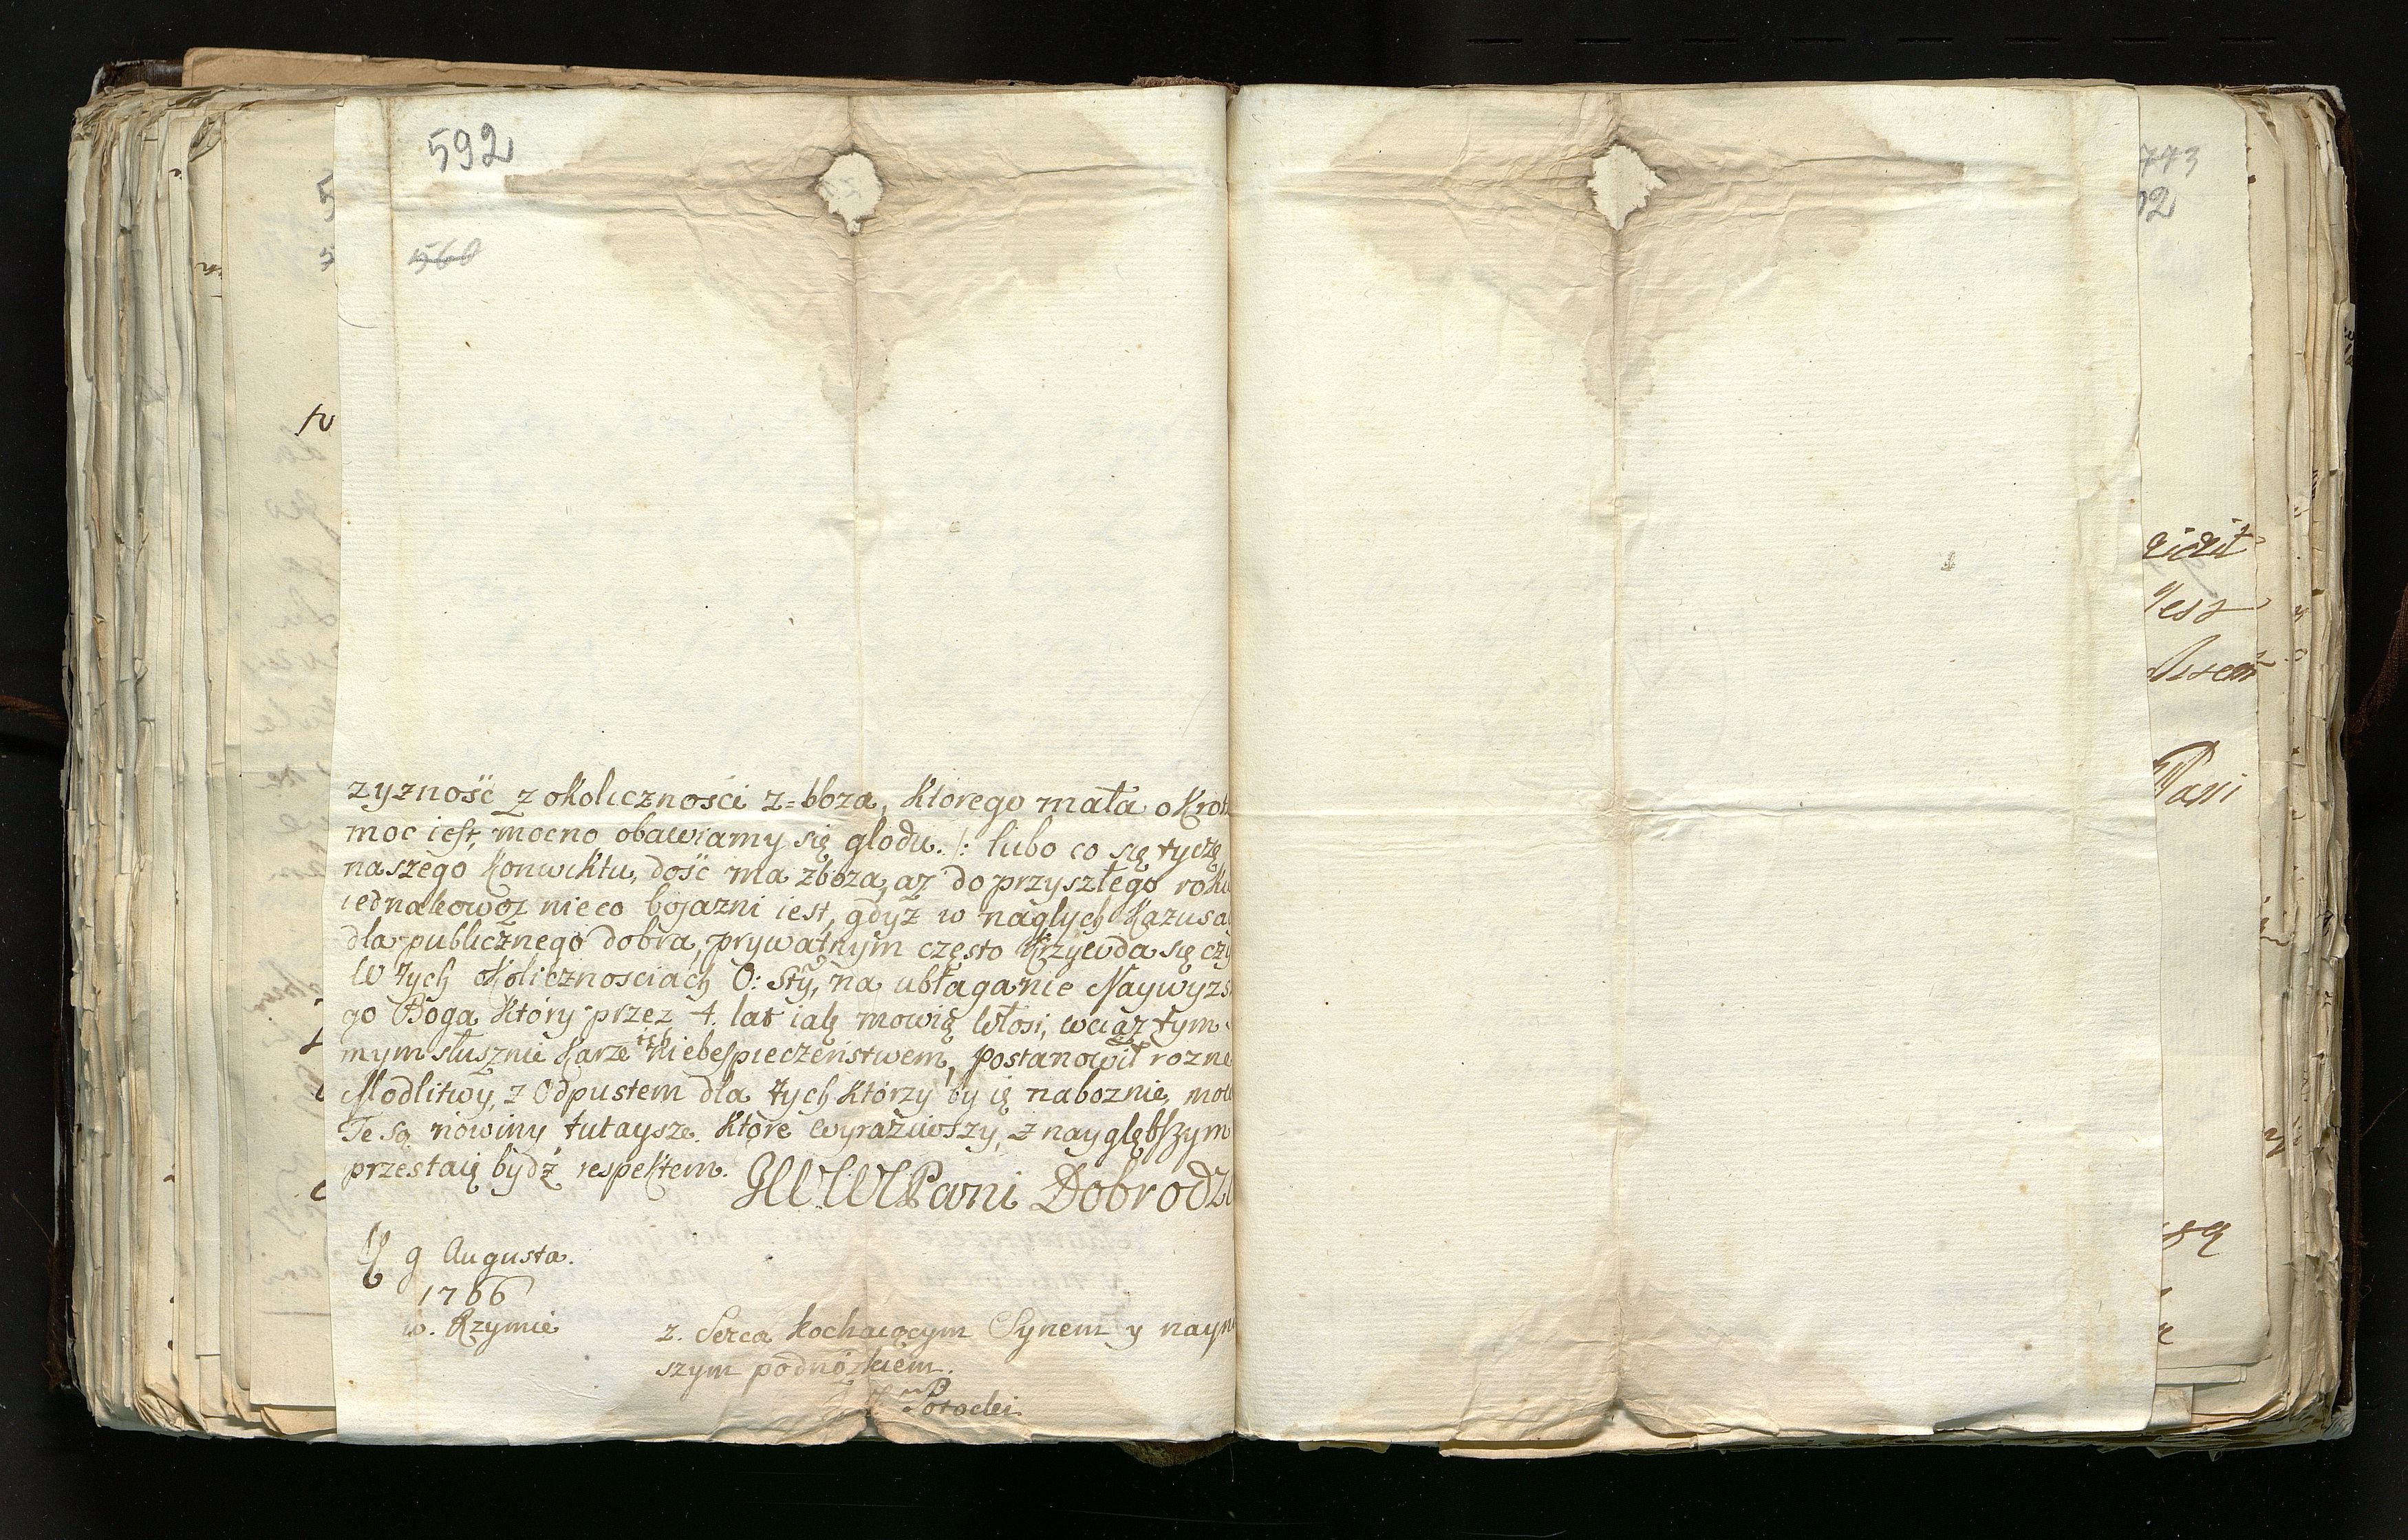 592
560
zyzność z okoliczności z=bboza, Ktorego mała okrot
moc iest, mocno obawiamy się glodu. /: lubo co się tyczę
naszego Konwiktu, dość ma zboza, aż do przyszłego roku
iednakowoż nieco bojazni iest, gdyż w naglych Kazusa
dla publicznego dobra, prywatnym często Krzywda się czy
W tych okolicznosciach O: Sty, na ubłaganie Naywyzs
go Boga Który przez 4. lat ialę mowią Włosi, wciąż tym
mym słusznie Karze ich niebespieczeństwem, postanowił rozne
Modlitwy, z Odpustem dla tych Którzy by ię naboznie, mow
Te są nowiny tutaysze. Które wyraziwszy, z nayglębszym
przestaię bydź respektem.
JWWPani Dobrodzi
9 Augusta.
1766
w. Rzymie
z. Serca Kochaiącym Synem y nayni
szym podnóżkiem.
Potocki
773
92
Pani